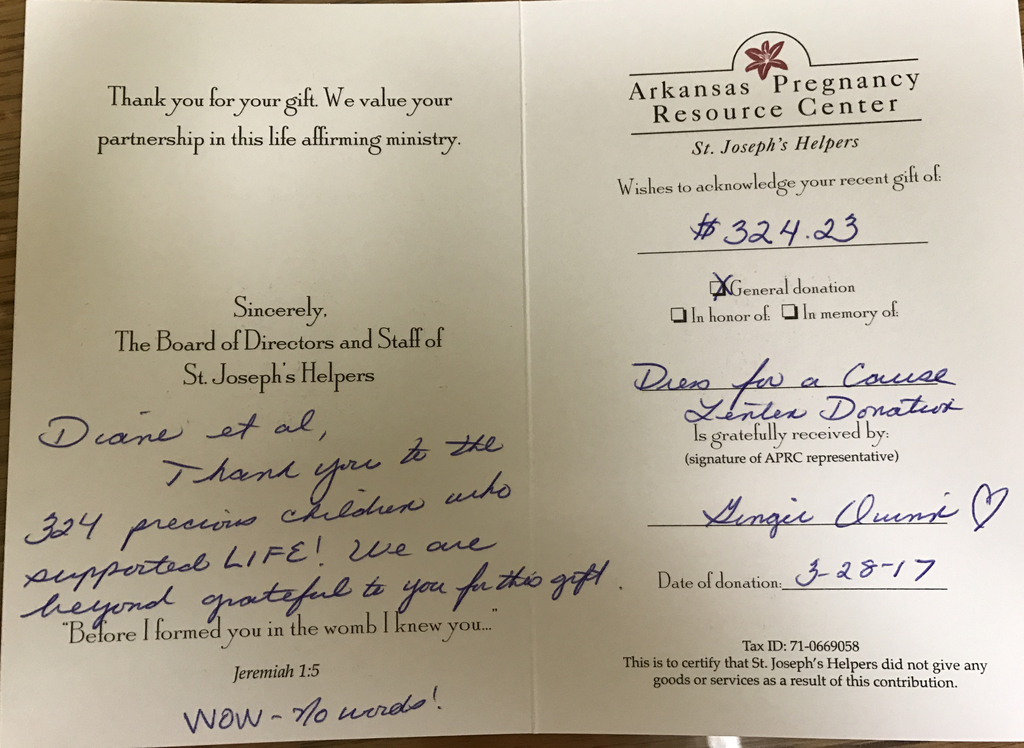 Thank you for your gift. We value your
partnership in this life affirming ministry.
Sincerely,
The Board of Directors and Staff of
St. Joseph's Helpers
Diane et al,
Thank you to the
324 precious children who
supported LIFE! We are
beyond grateful to you for this gift.
"Before I formed you in the womb I knew you..."
Jeremiah 1:5
WOW - No words!
Arkansas Pregnancy
Resource Center
St. Joseph's Helpers
Wishes to acknowledge your recent gift of:
$324.23
X General donation
In honor of: In memory of:
Dress for a Cause
Lenten Donation
Is gratefully received by:
(signature of APRC representative)
Quinn
Date of donation: 3-28-17
Tax ID: 71-0669058
This is to certify that St. Joseph's Helpers did not give any
goods or services as a result of this contribution.